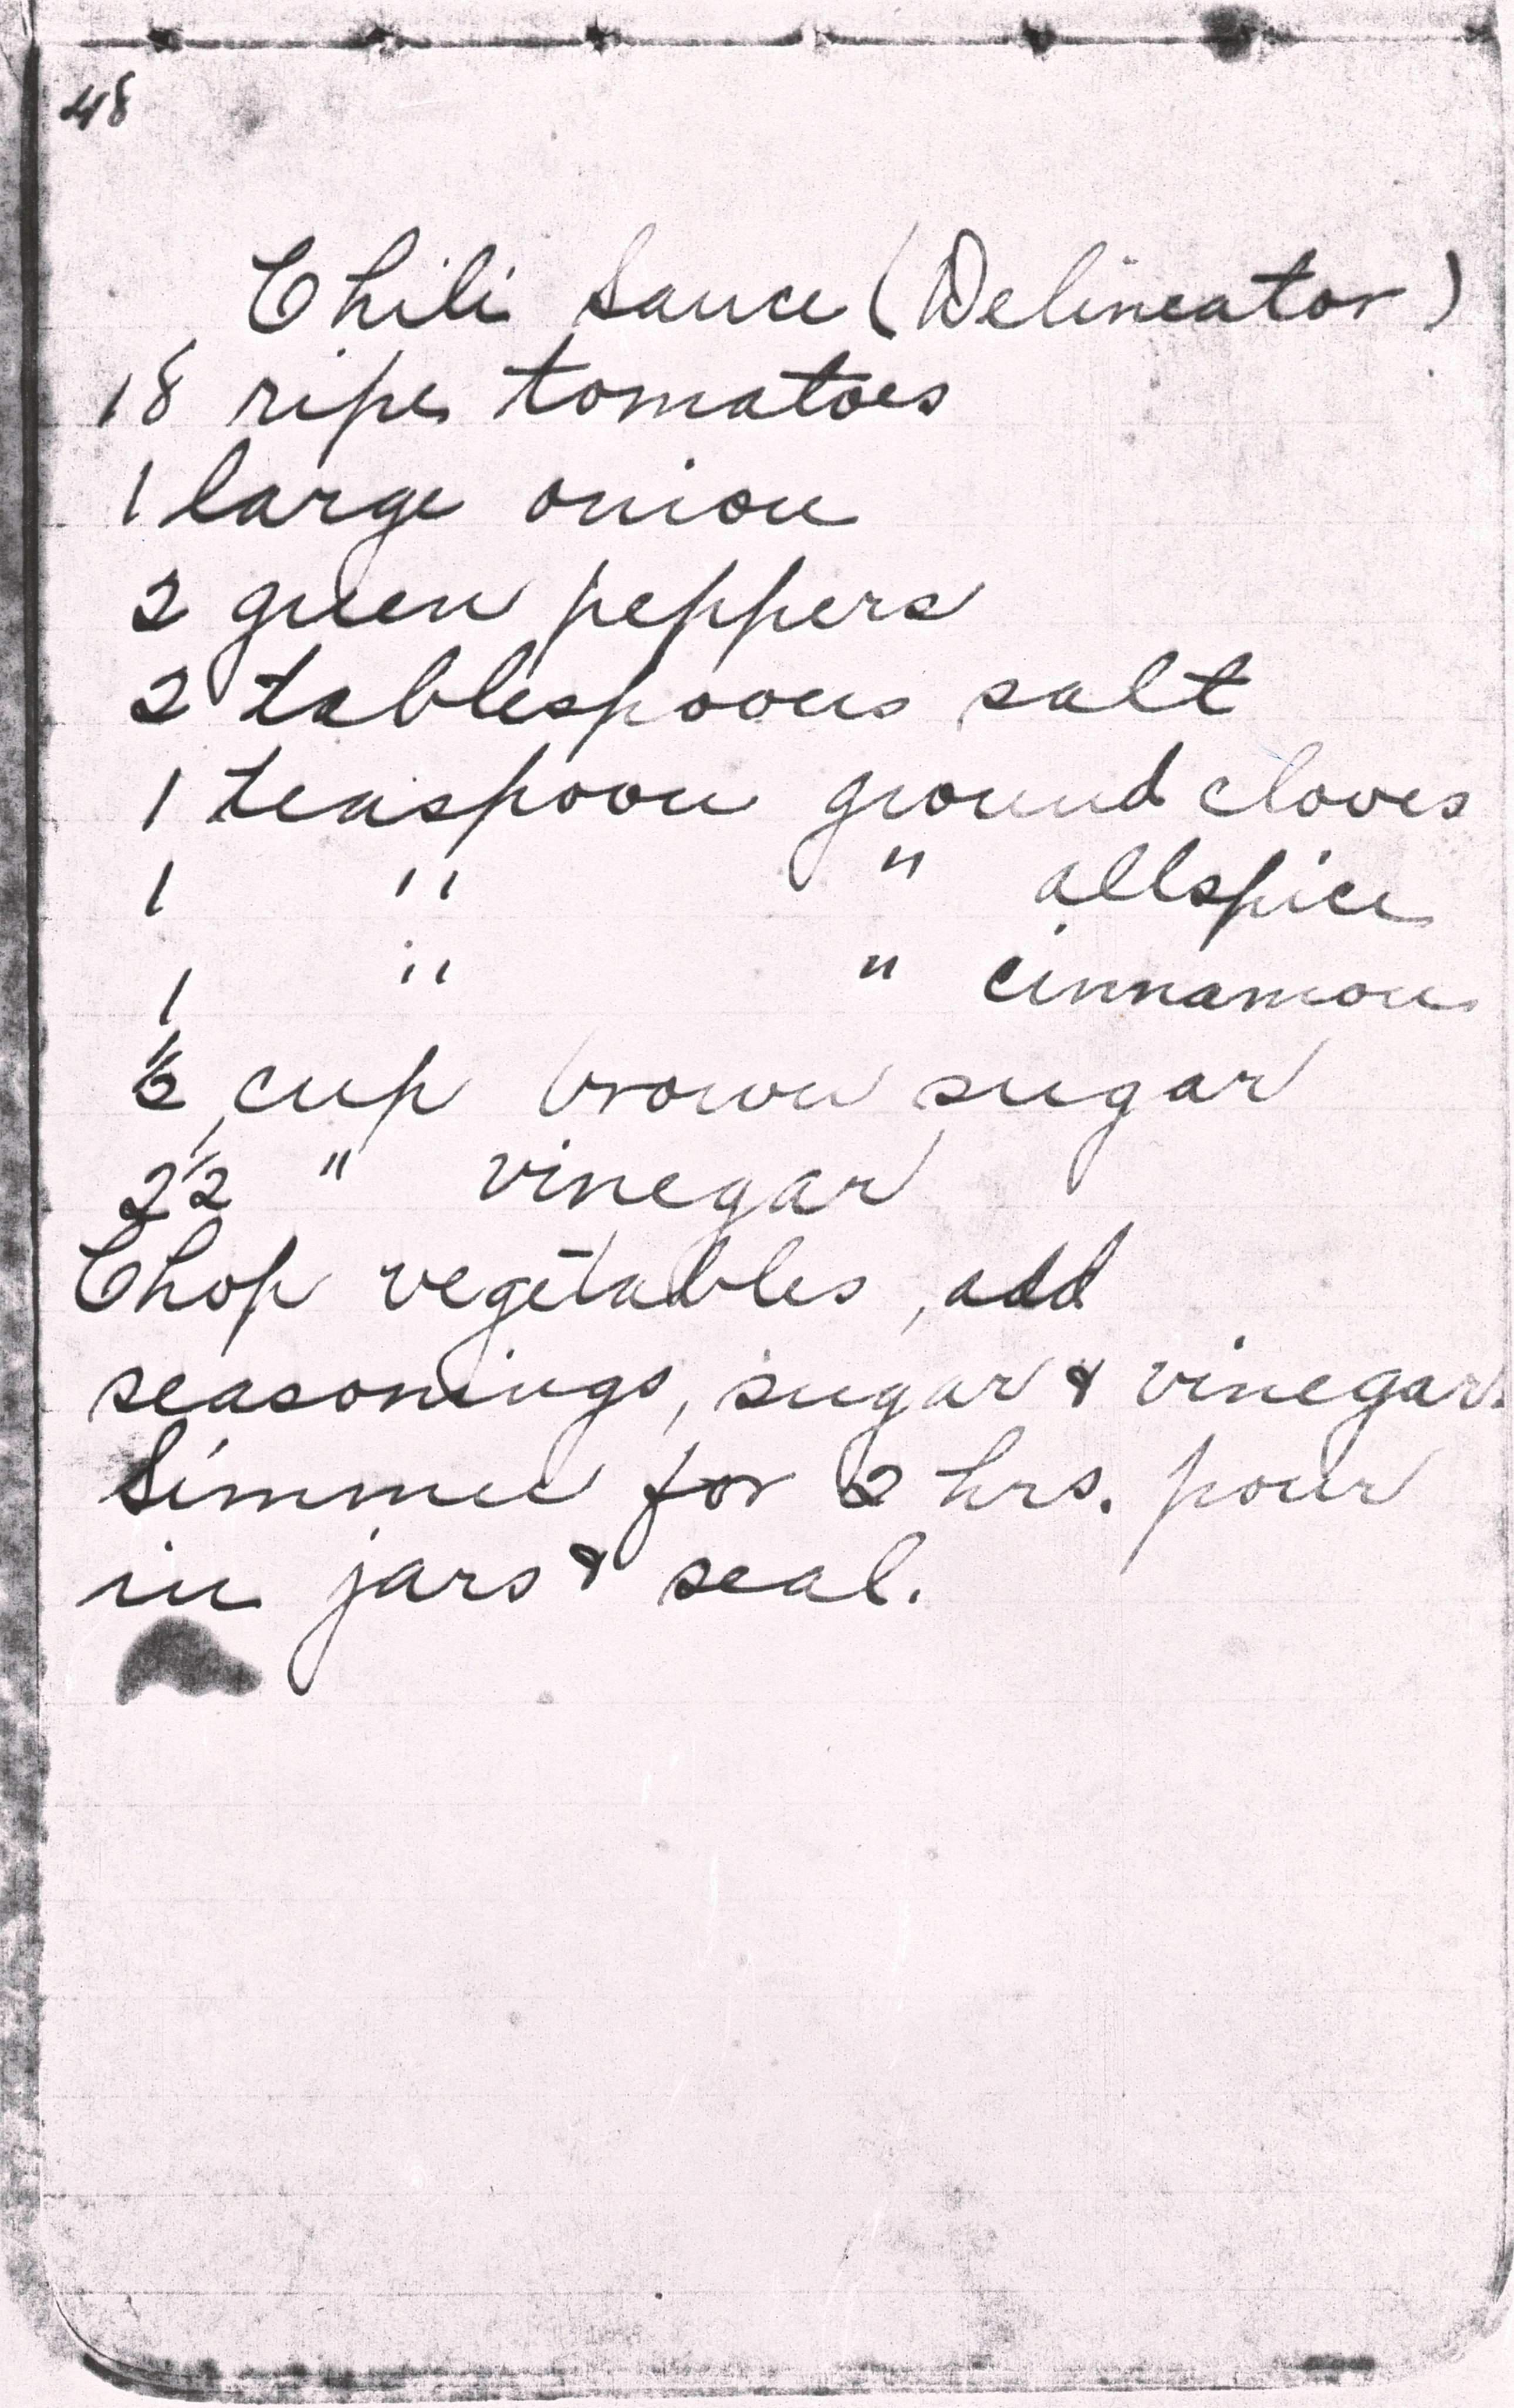 48
Chili Sauce (Delineator)
18 ripe tomatoes
1 large onion
2 green peppers
2 tablespoons salt
1 teaspoon ground cloves
1 " " allspice
1 " " cinnamon
1/2 cup brown sugar
2 1/2 " vinegar
Chop vegetables, add
seasonings, sugar & vinegar.
Simmer for 2 hrs. pour
in jars & seal.